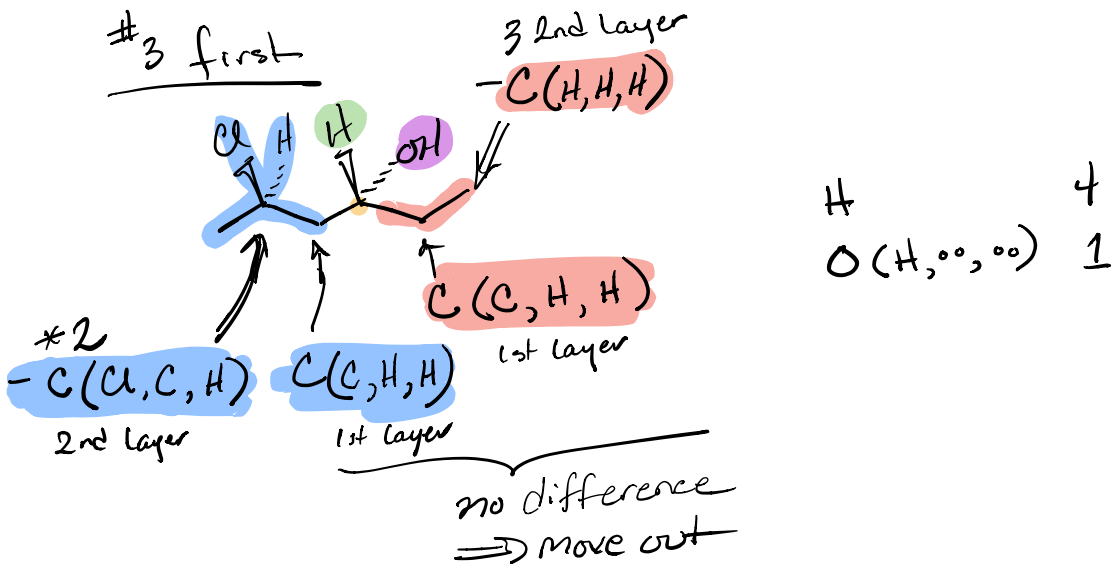 #3 first
3 2nd Layer
-C(H,H,H)
Cl H H OH
H 4
O(H,••,••) 1
C(C,H,H)
1st Layer
*2
-C(Cl,C,H)
2nd Layer
C(C,H,H)
1st Layer
no difference
⇒ move out